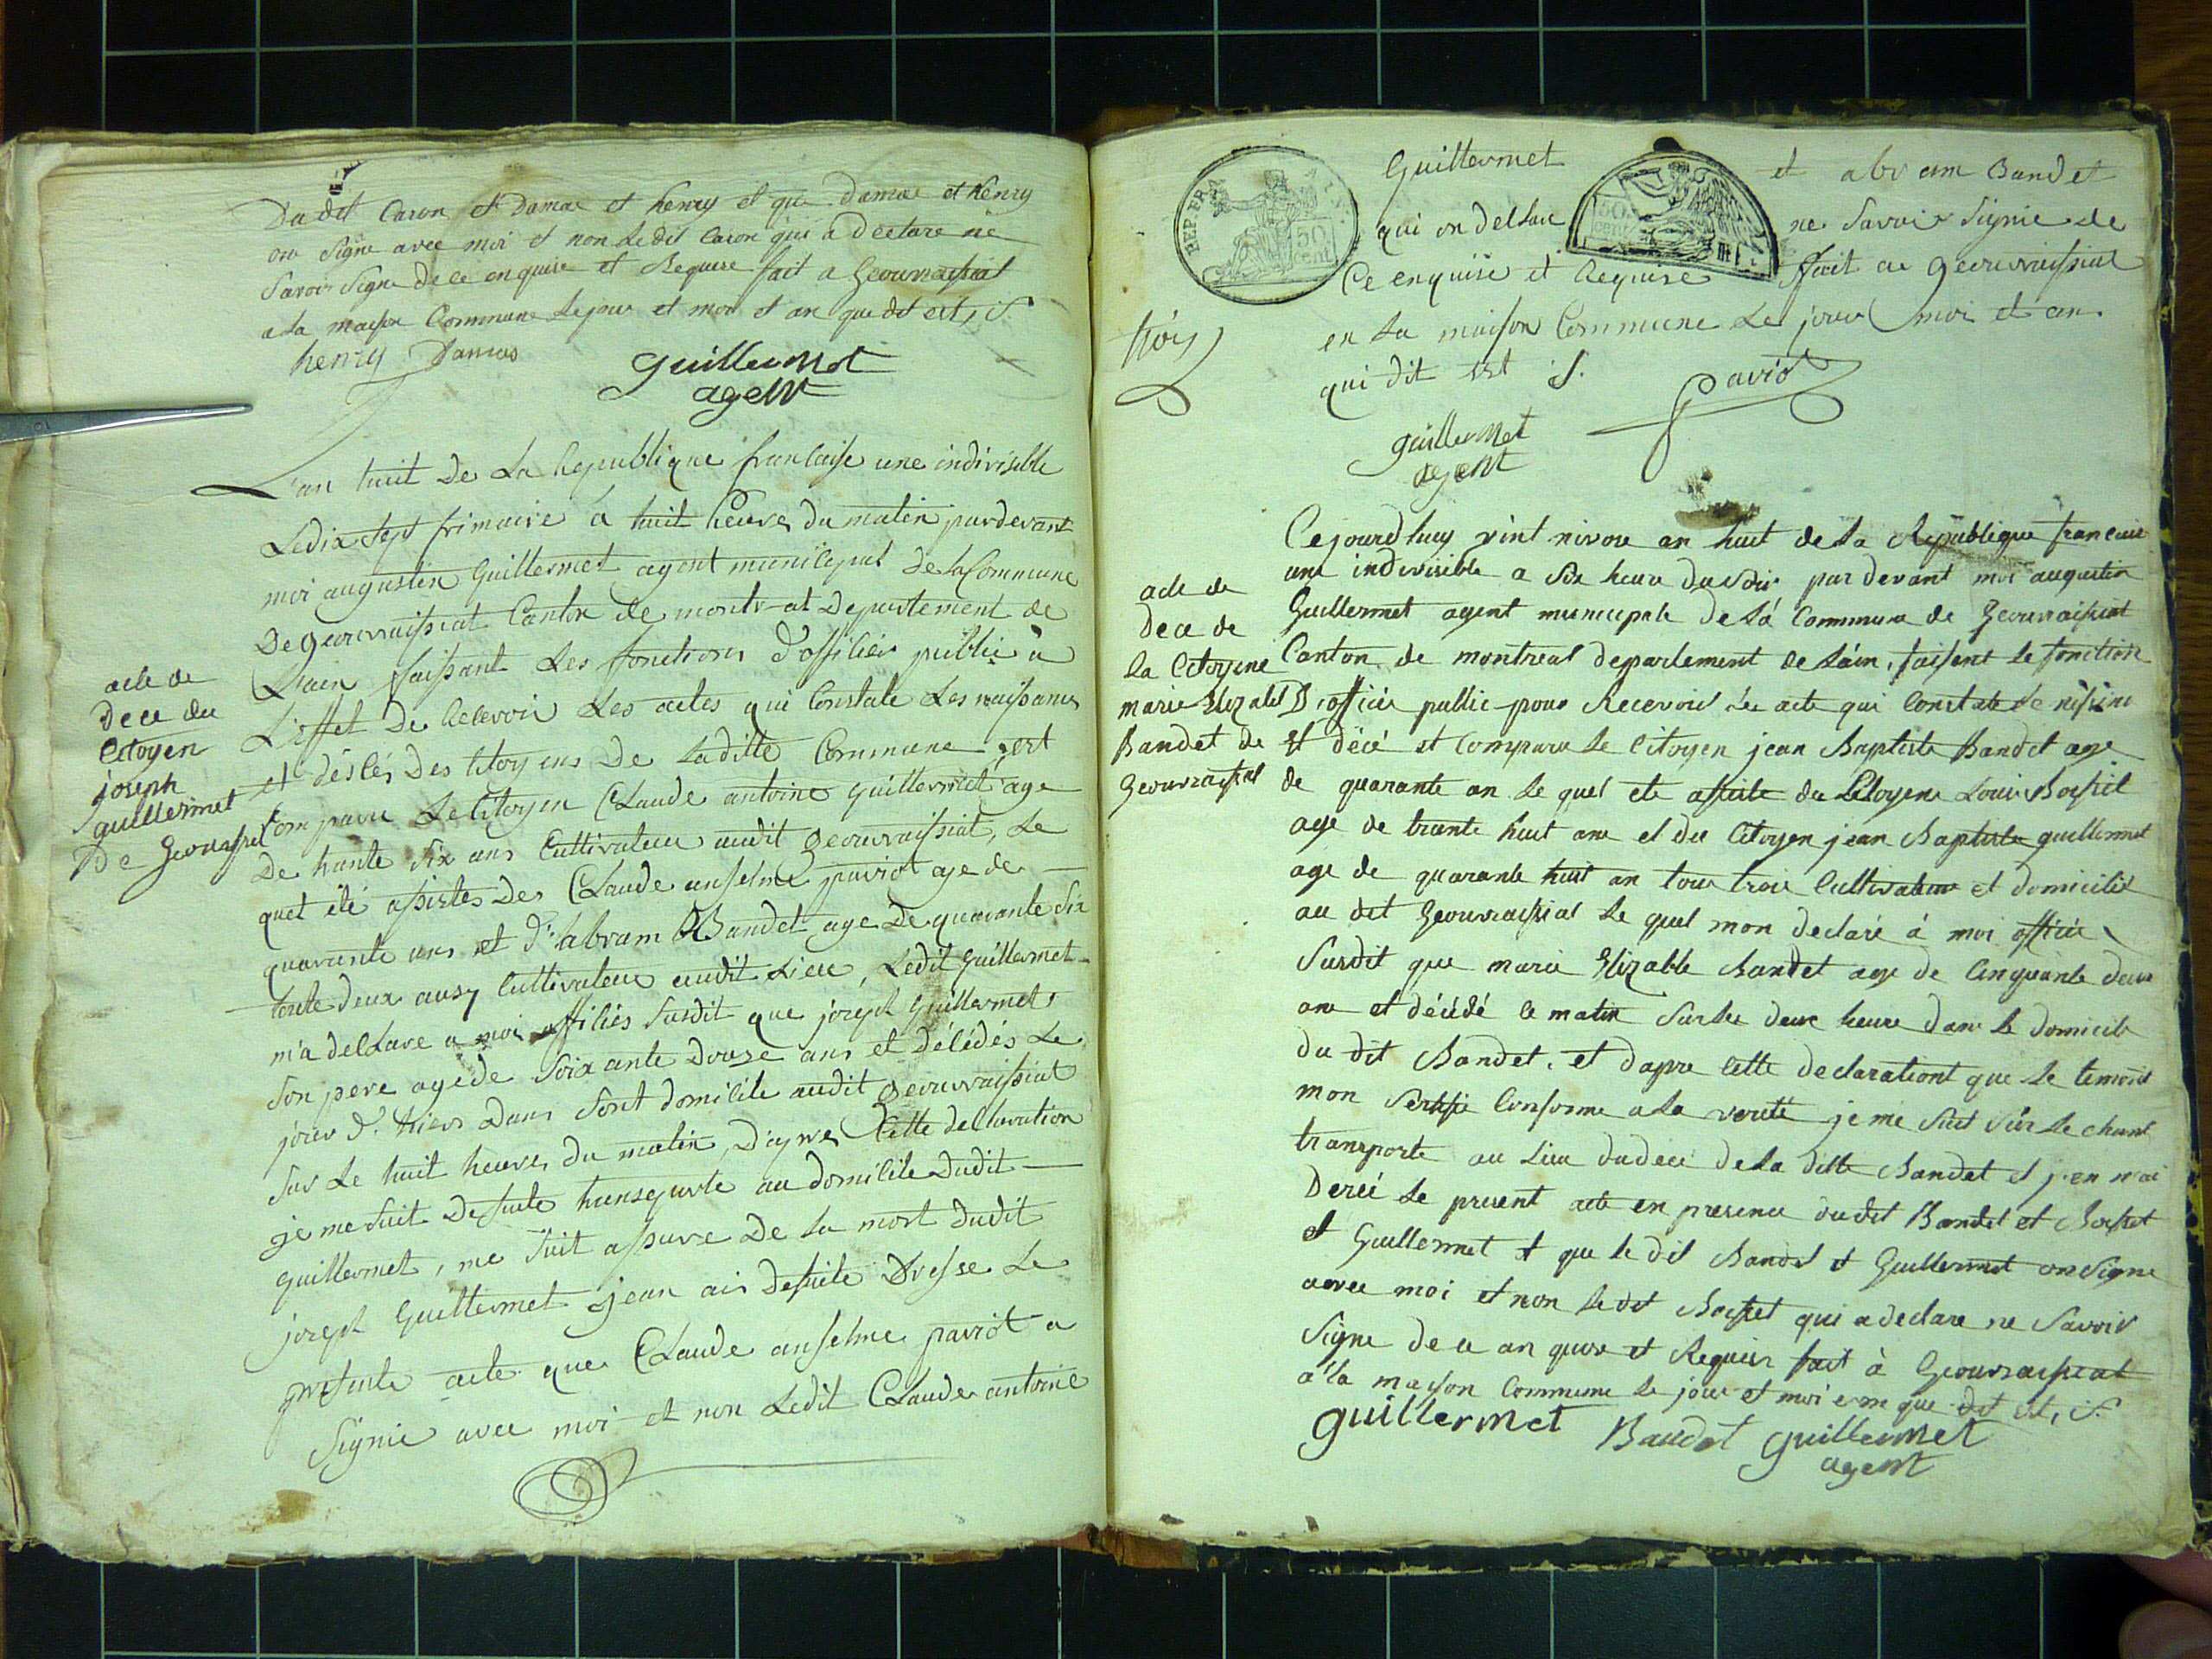 Dudit Caron et Damas et henry et que Damas et henry
on Signe avec moi et non Le dit Caron qui a Declare ne
Savoir Signe de ce enquise et Requise fait a Geovraissiat
a la maison Commune Le jour et moi et an que dit est, S.
henry Damas guillermet
agent
L'an huit De La Republique francaise une indivisible
Le dix Sept frimaire a huit heures du matin pardevant
moi augustin Guillermet agent municipal De La Commune
De geovraissiat Canton de montreal Departement de
L'ain faissant Les fonctions d'officier public a
L'effet De Recevoir Les actes qui Constate Les naissances
et désés Des Citoyens De Laditte Commune est
Comparu Le Citoyen Claude antoine guillermet age
De trante Six ans Cultivateur audit geovraissiat, Le
quel été assistes De Claude anselme paviot age de
quarante ans et D'abram Bandet age De quarante Six
toute deux ausy Cultivateur audit Lieu, Ledit Guillermet
m'a declare a moi officiés Susdit que joseph Guillermet
Son pere age de Soixante Douse ans et délédés Le
jour d'hiers Dans Sont domicile audit geovraissiat
Sur Le huit heures du matin, D'apres Cette declaration
je me Suit De Suite transporte au domicile Dudit
guillermet, me Suit assure De La mort dudit
joseph Guillermet jean ais deSuite Dresse Le
presente acte que Claude anselme paviot a
Signie avec moi et non Ledit Claude antoine
acte de
Dece du
Citoyen
joseph
guillermet
De
Guillermet et abram Bandet
qui on declare ne Savoir Signie de
Ce enquise et Requise fait a geovraissiat
en La maison Commune Le jour moi et an
qui dit est S.
Paviot
guillermet
agent
REP. FRA
50
cent
50
cent
trois
Cejourdhuy vint nivose an huit de La Republique francaise
une indivisible a Six heure du soir par devant moi augustin
Guillermet agent municipale De La Commune de Geovraissiat
Canton de montreal departement de L'ain, faisent le fonction
D'officier public pour Recevoir Les acte qui Constate Le
Et décé et Comparu Le Citoyen jean Baptiste Bandet age
de quarante an Le quel ete assiste du Citoyene Louis
age de trante huit ans et du Citoyen jean Baptiste guillermet
age de quarante huit an tous trois Cultivateur et domicilié
au dit Geovraissiat Le quel mon declaré à moi officier
Susdit que marie Elizable Bandet age de Cinquante deux
ans et décédé le matin Sur les deux heure dans le domicile
du dit Bandet, et dapre Cette declarationt que Le temoins
mon Conforme a La verité je me Suit Sur Le chant
transporte au Lieu du deces de La ditte Bandet et j'en n'ai
Le present acte en presence dudit Bandet et
et Guillermet et que le dit Bandet et Guillermet on Signe
avec moi et non Le dit qui a declare ne Savoir
Signe de ce an quise et Requier fait à Geovraissiat
a la maison Commune Le jour et moi et an que dit est, S.
guillermet Bandet guillermet
agent
acte de
Dece de
La Citoyene
marie Elizabet
Bandet de
Geovraissiat